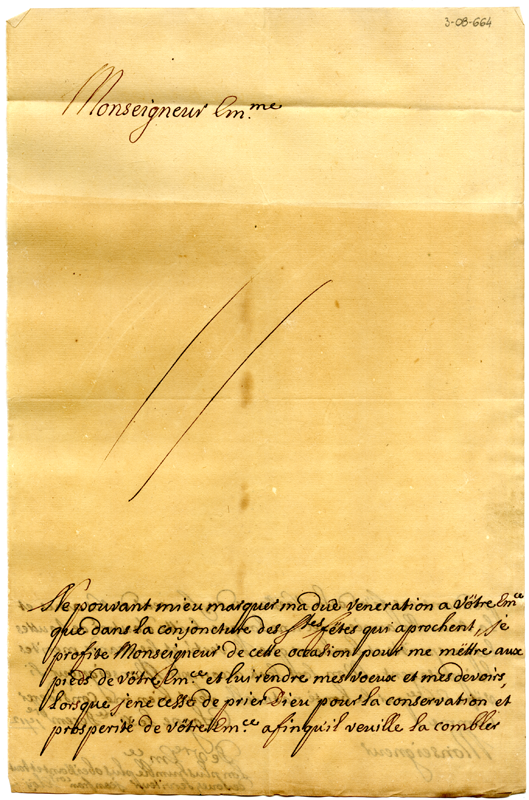 3-08-664
Monseigneur Em.me
Ne pouvant mieu marquer ma due veneration a vôtre Em.ce
que dans la conjoncture des Stes fêtes qui aprochent, je
profite Monseigneur de cette occasion pour me méttre aux
pieds de vôtre Em.ce et lui rendre mes voeux et mes devoirs,
Lorsque je ne cesse de prier Dieu pour la conservation et
prosperité de vôtre Em.ce afinqu'il veuille la combler